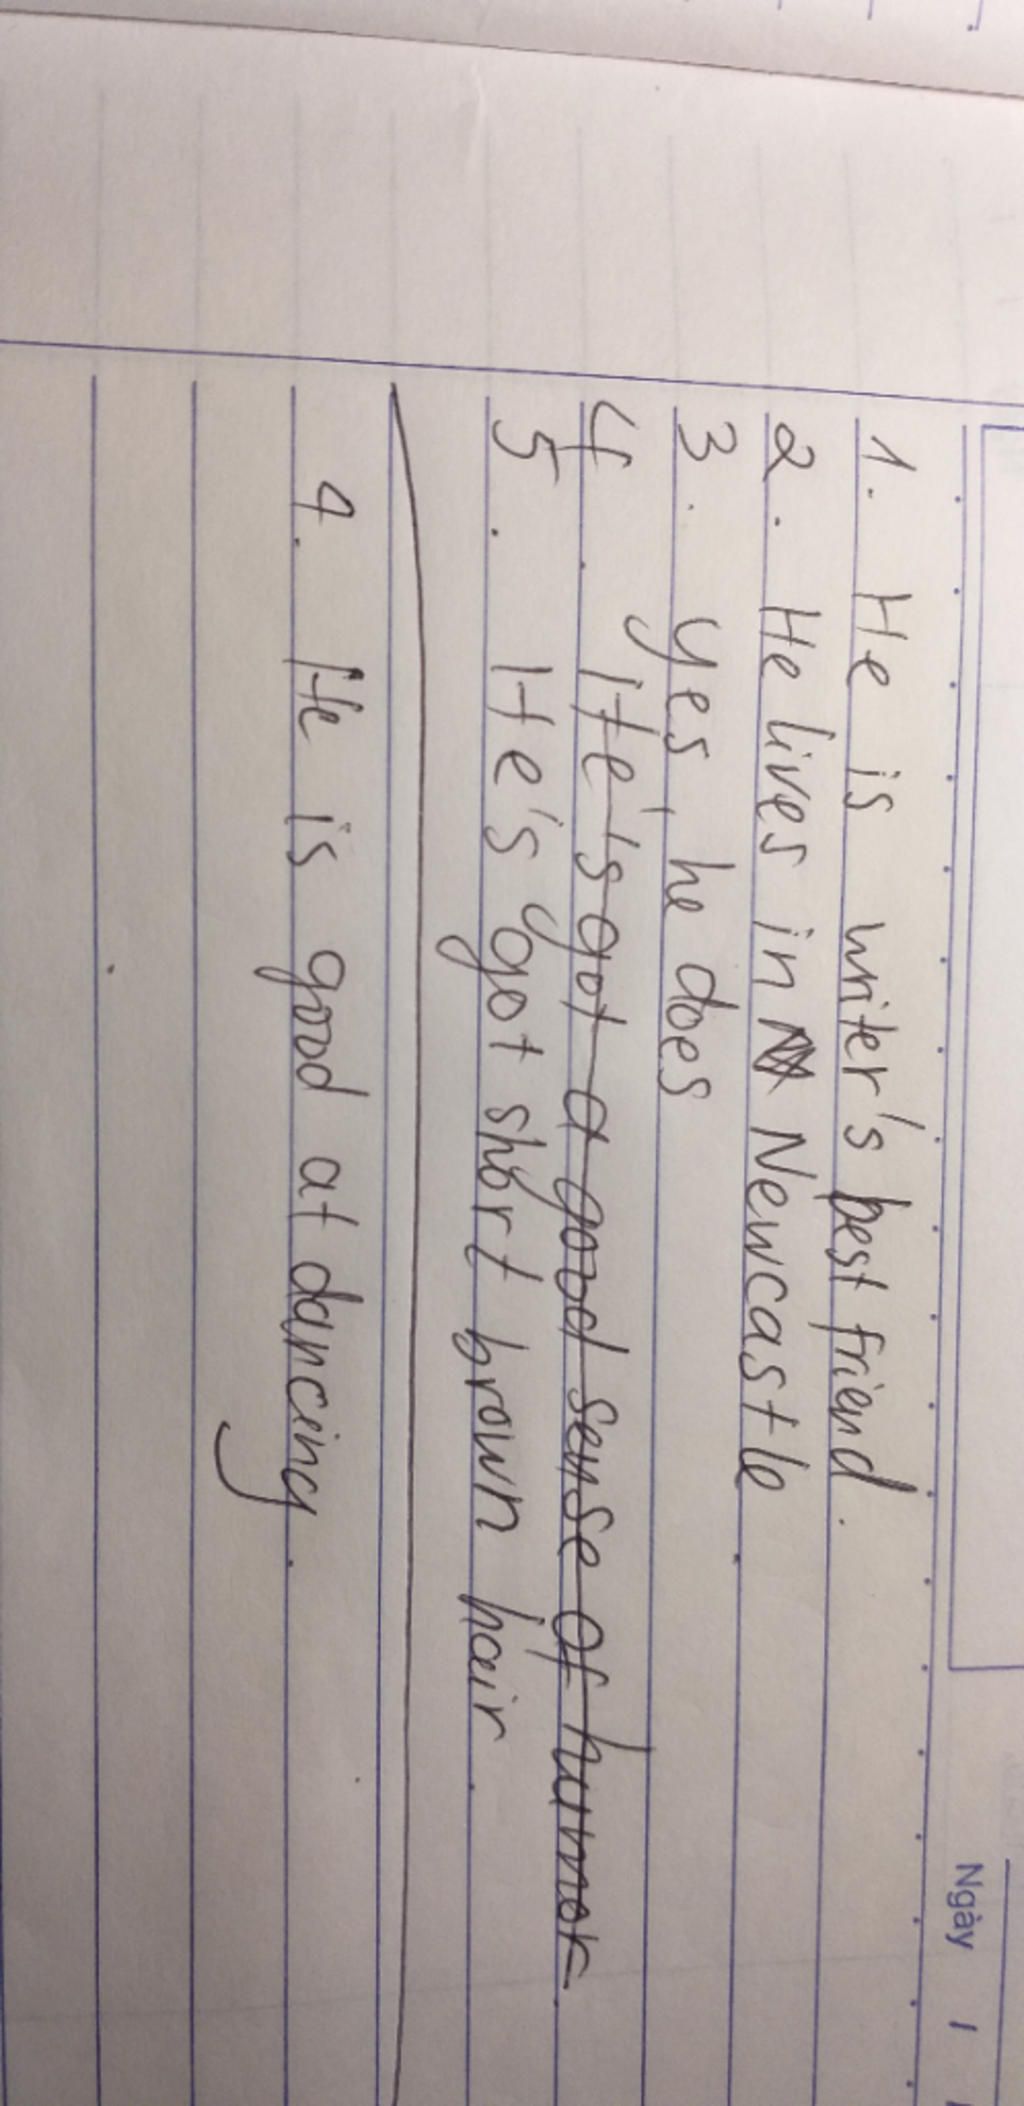 Ngày /
1. He is writer's best friend.
2. He lives in Newcastle.
3. yes, he does
4. He's got a good sense of humor.
5. He's got short brown hair.
4. He is good at dancing.